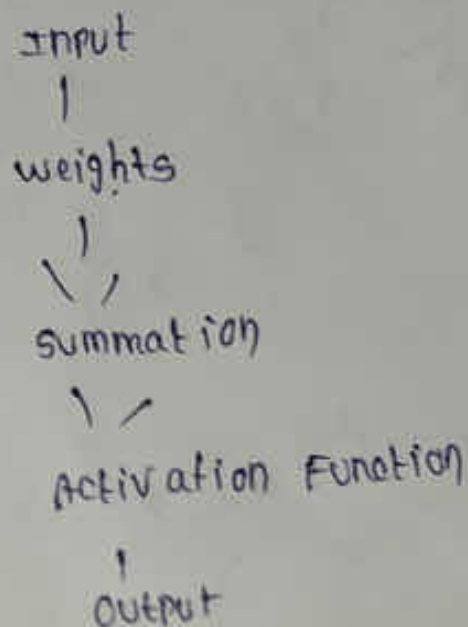 Input
weights
summation
Activation Function
output